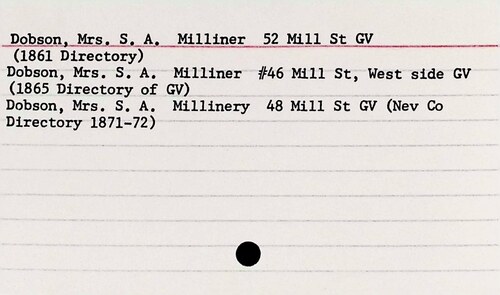 Dobson, Mrs. S. A. Milliner 52 Mill St GV
(1861 Directory)
Dobson, Mrs. S. A. Milliner #46 Mill St, West side GV
(1865 Directory of GV)
Dobson, Mrs. S. A. Millinery 48 Mill St GV (Nev Co
Directory 1871-72)